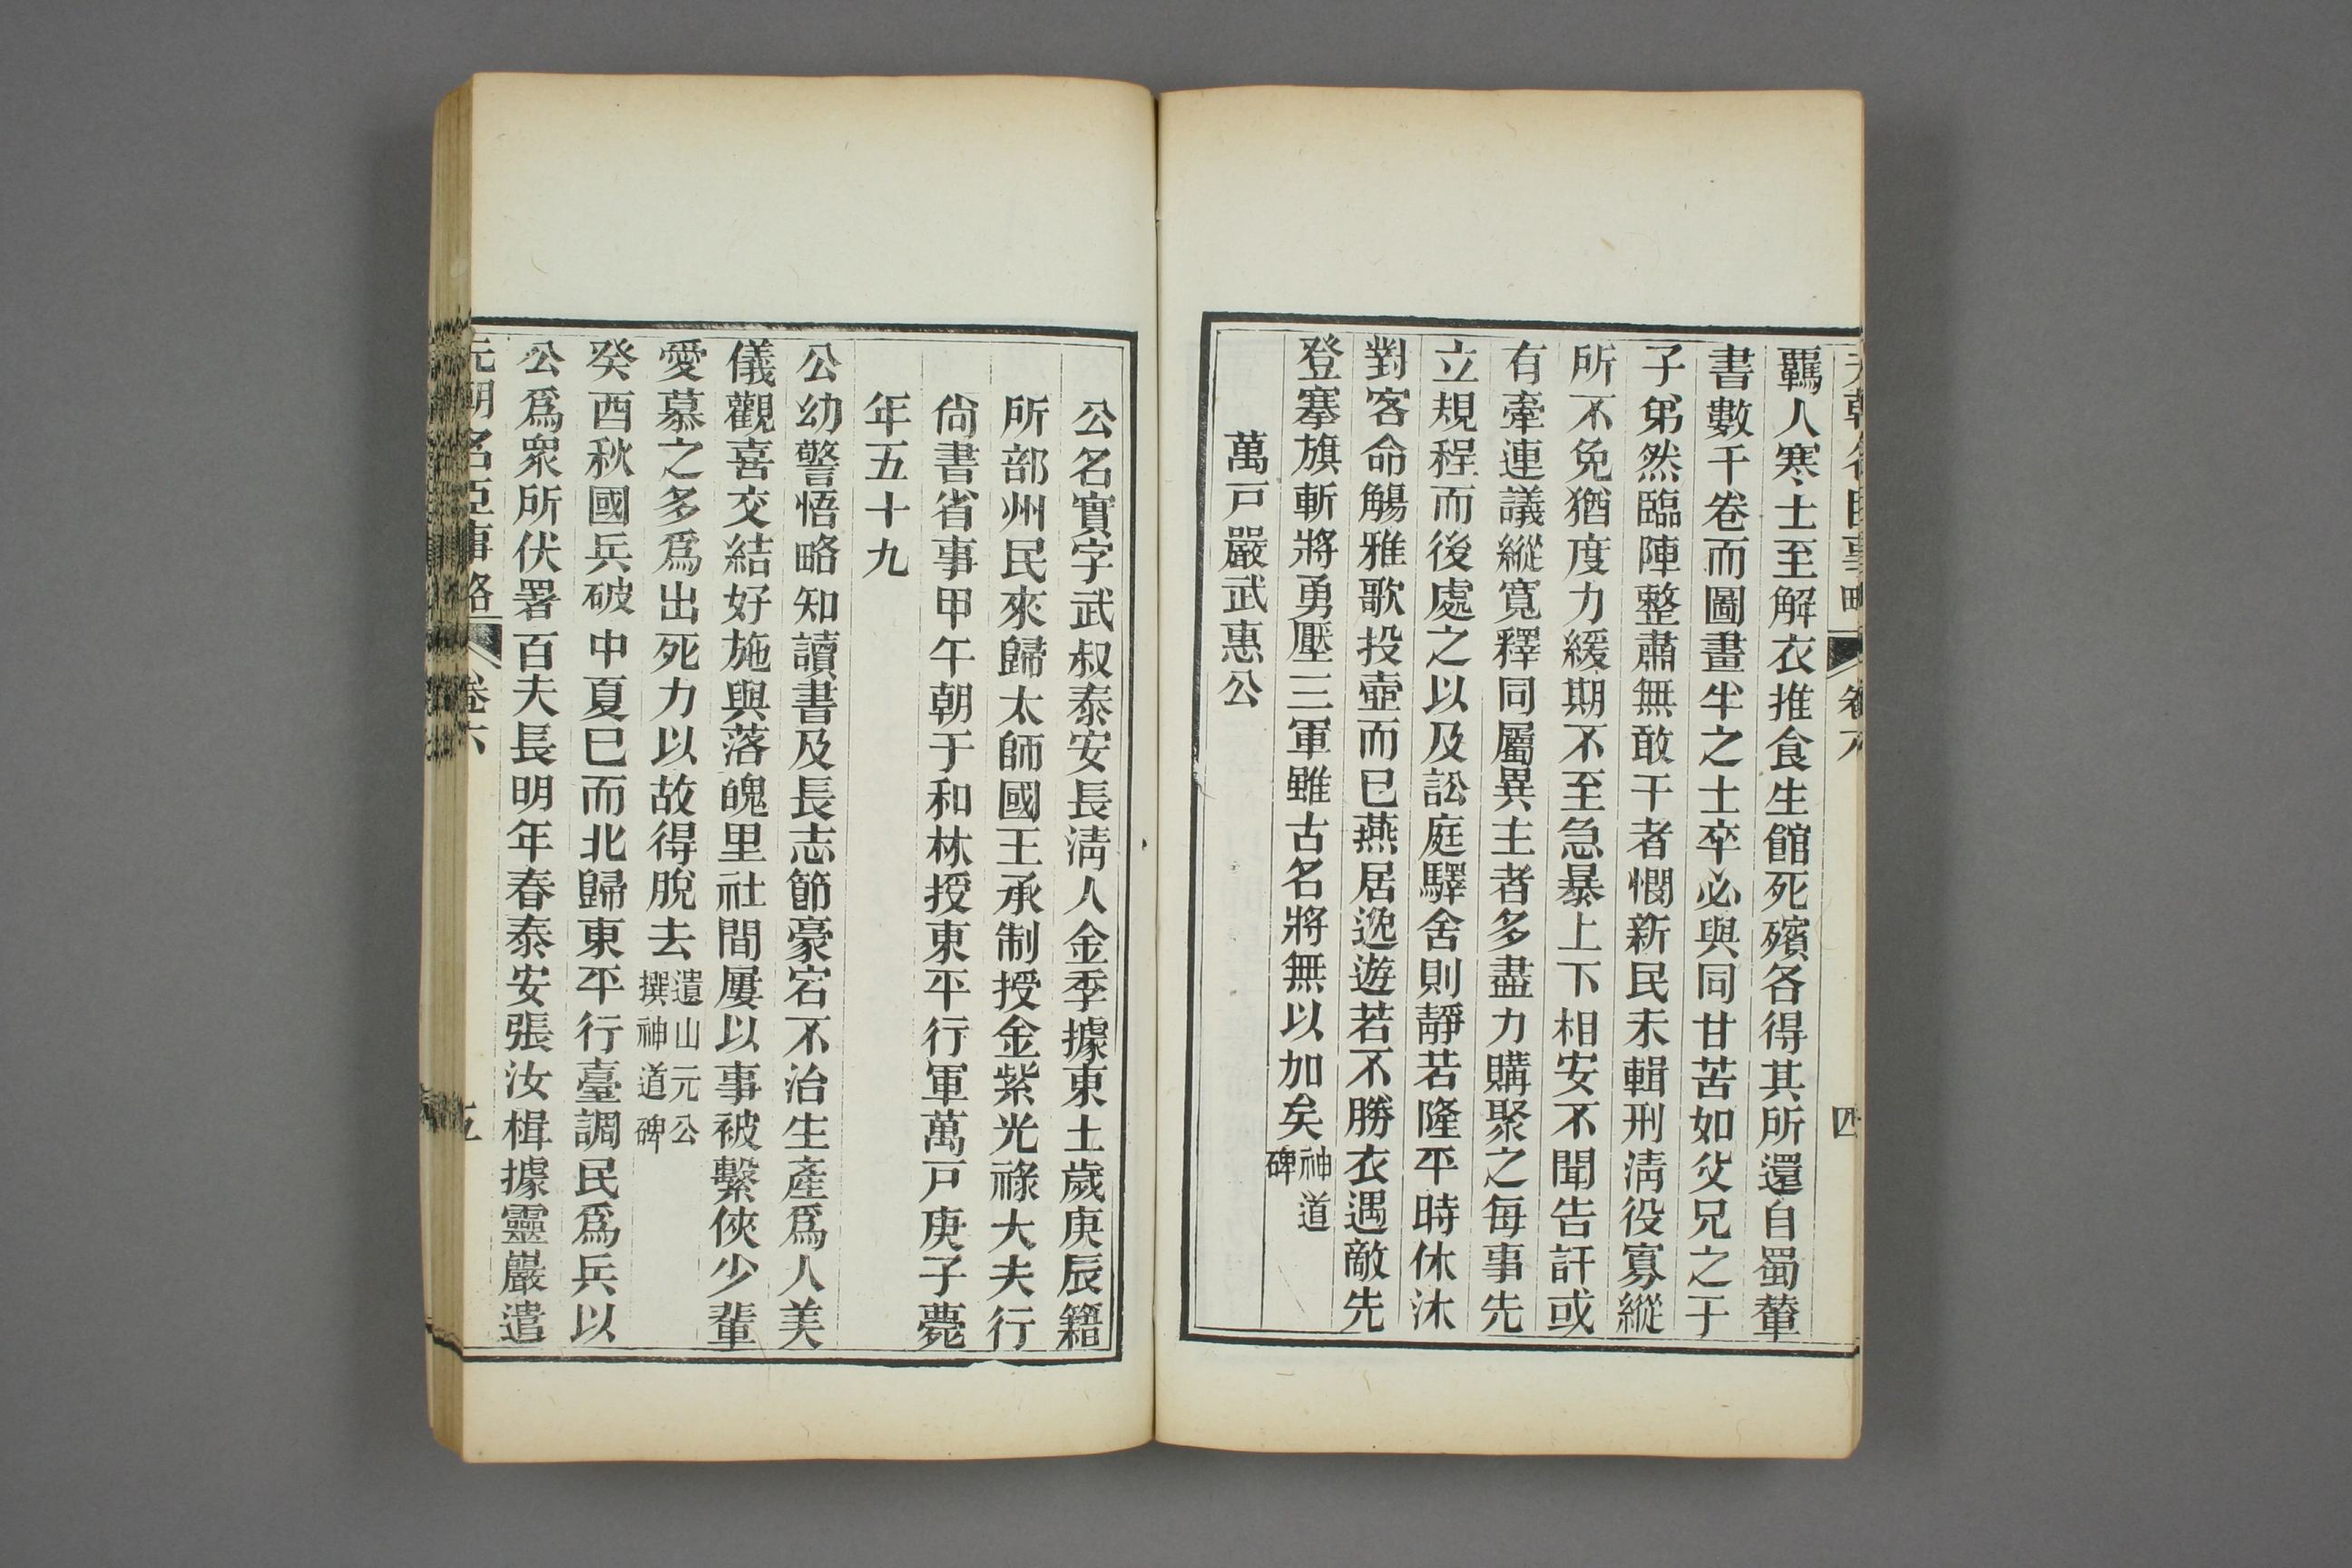 元朝名臣事略 卷六 四
羈人寒士至解衣推食生館死殯各得其所還自蜀輦
書數千卷而圖畫半之士卒必與同甘苦如父兄之于
子弟然臨陣整肅無敢干者憫新民未輯刑淸役寡縱
所不免猶度力緩期不至急暴上下相安不聞告訐或
有牽連議縱寬釋同屬異主者多盡力購聚之每事先
立規程而後處之以及訟庭驛舍則靜若隆平時休沐
對客命觴雅歌投壺而已燕居逸遊若不勝衣遇敵先
登搴旗斬將勇壓三軍雖古名將無以加矣神道
碑
萬戸嚴武惠公
公名實字武叔泰安長淸人金季據東土歲庚辰籍
所部州民來歸太師國王承制授金紫光祿大夫行
尙書省事甲午朝于和林授東平行軍萬戸庚子薨
年五十九
公幼警悟略知讀書及長志節豪宕不治生產爲人美
儀觀喜交結好施與落魄里社間屢以事被繫俠少輩
愛慕之多爲出死力以故得脫去遺山元公
撰神道碑
癸酉秋國兵破中夏已而北歸東平行臺調民爲兵以
公爲眾所伏署百夫長明年春泰安張汝楫據靈巖遣
元朝名臣事略 卷六 五